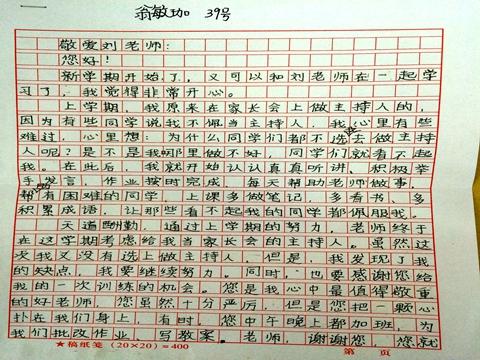 翁敏珈 39号
敬爱刘老师:
您好!
新学期开始了,又可以和刘老师在一起学
习了,我觉得非常开心。
上学期,我原来在家长会上做主持人的,
因为有些同学说我不佩当主持人,我心里有些
难过,心里想:为什么同学们都不选去做主持
人呢?是不是我哪里做不好,同学们就看不起
我。在此后,我就开始认认真真听讲、积极举
手发言、作业按时完成、每天帮助老师做事,
帮有困难的同学,上课多做笔记、多看书、多
积累成语,让那些看不起我的同学都佩服我。
天道酬勤,通过上学期的努力,老师终于
在这学期考虑给我当家长会的主持人。虽然过
次我又没有选上做主持人,但是,我发现了我
的缺点,我要继续努力。同时,也要感谢您给
我的一次训练的机会。您是我心中最值得敬重
的好老师,您虽然十分严厉,但是您把一颗心
扑在我们身上,有时,您中午晚上都加班,为
我们批改作业,写教案。老师,谢谢您,您就
★稿纸笺(20×20)=400 第 页